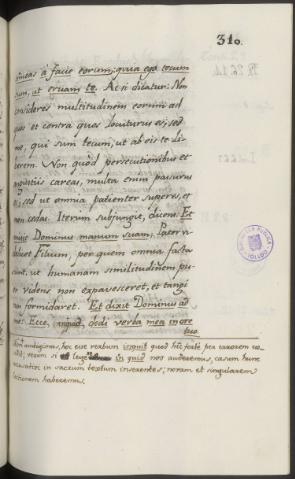 310.
timeas à facie eorum; quia ego tecum
sum, ut eruam te. Ac si dicatur: Non
consideres multitudinem eorum ad
quos et contra quos lociturus es; sed
me, qui sum tecum, ut ab eis te li-
berem. Non quòd persecutionibus et
careas, multa enim passurus
es; sed ut omnia patienter superes, et
non cedas. Iterum subjungit, dicens: Et
misit Dominus manum suam. Pater vi-
delicet Filium, per quem omnia facta
sunt, ut humanam similitudinem pu-
er videns non expavesceret, et tangi
non formidaret. Et dixit Dominus ad
me: Ecce, inquit, dedi verba mea in ore
tuo.
ambiguas, hoc est verbum inquit quod hîc fortè per errorem
verum si lege in quid nos auderemus, casum hunc
in sacrum textum inserentes; normam et singularem
haberemus.